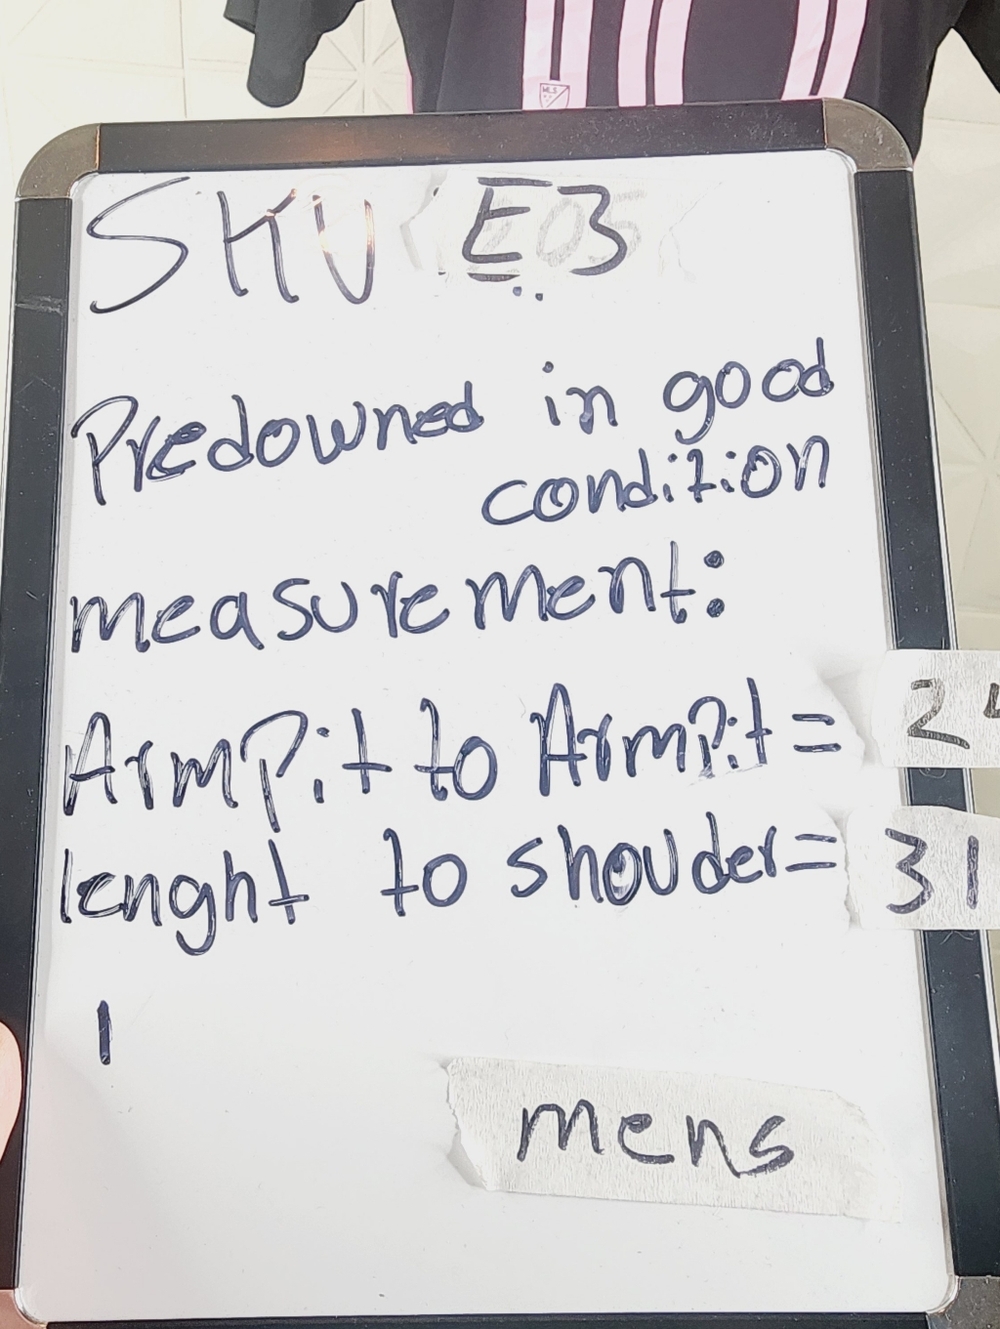 MLS
SKU E3
Predowned in good
condition
measurement:
ArmPit to ArmPit =
lenght to shouder= 31
mens